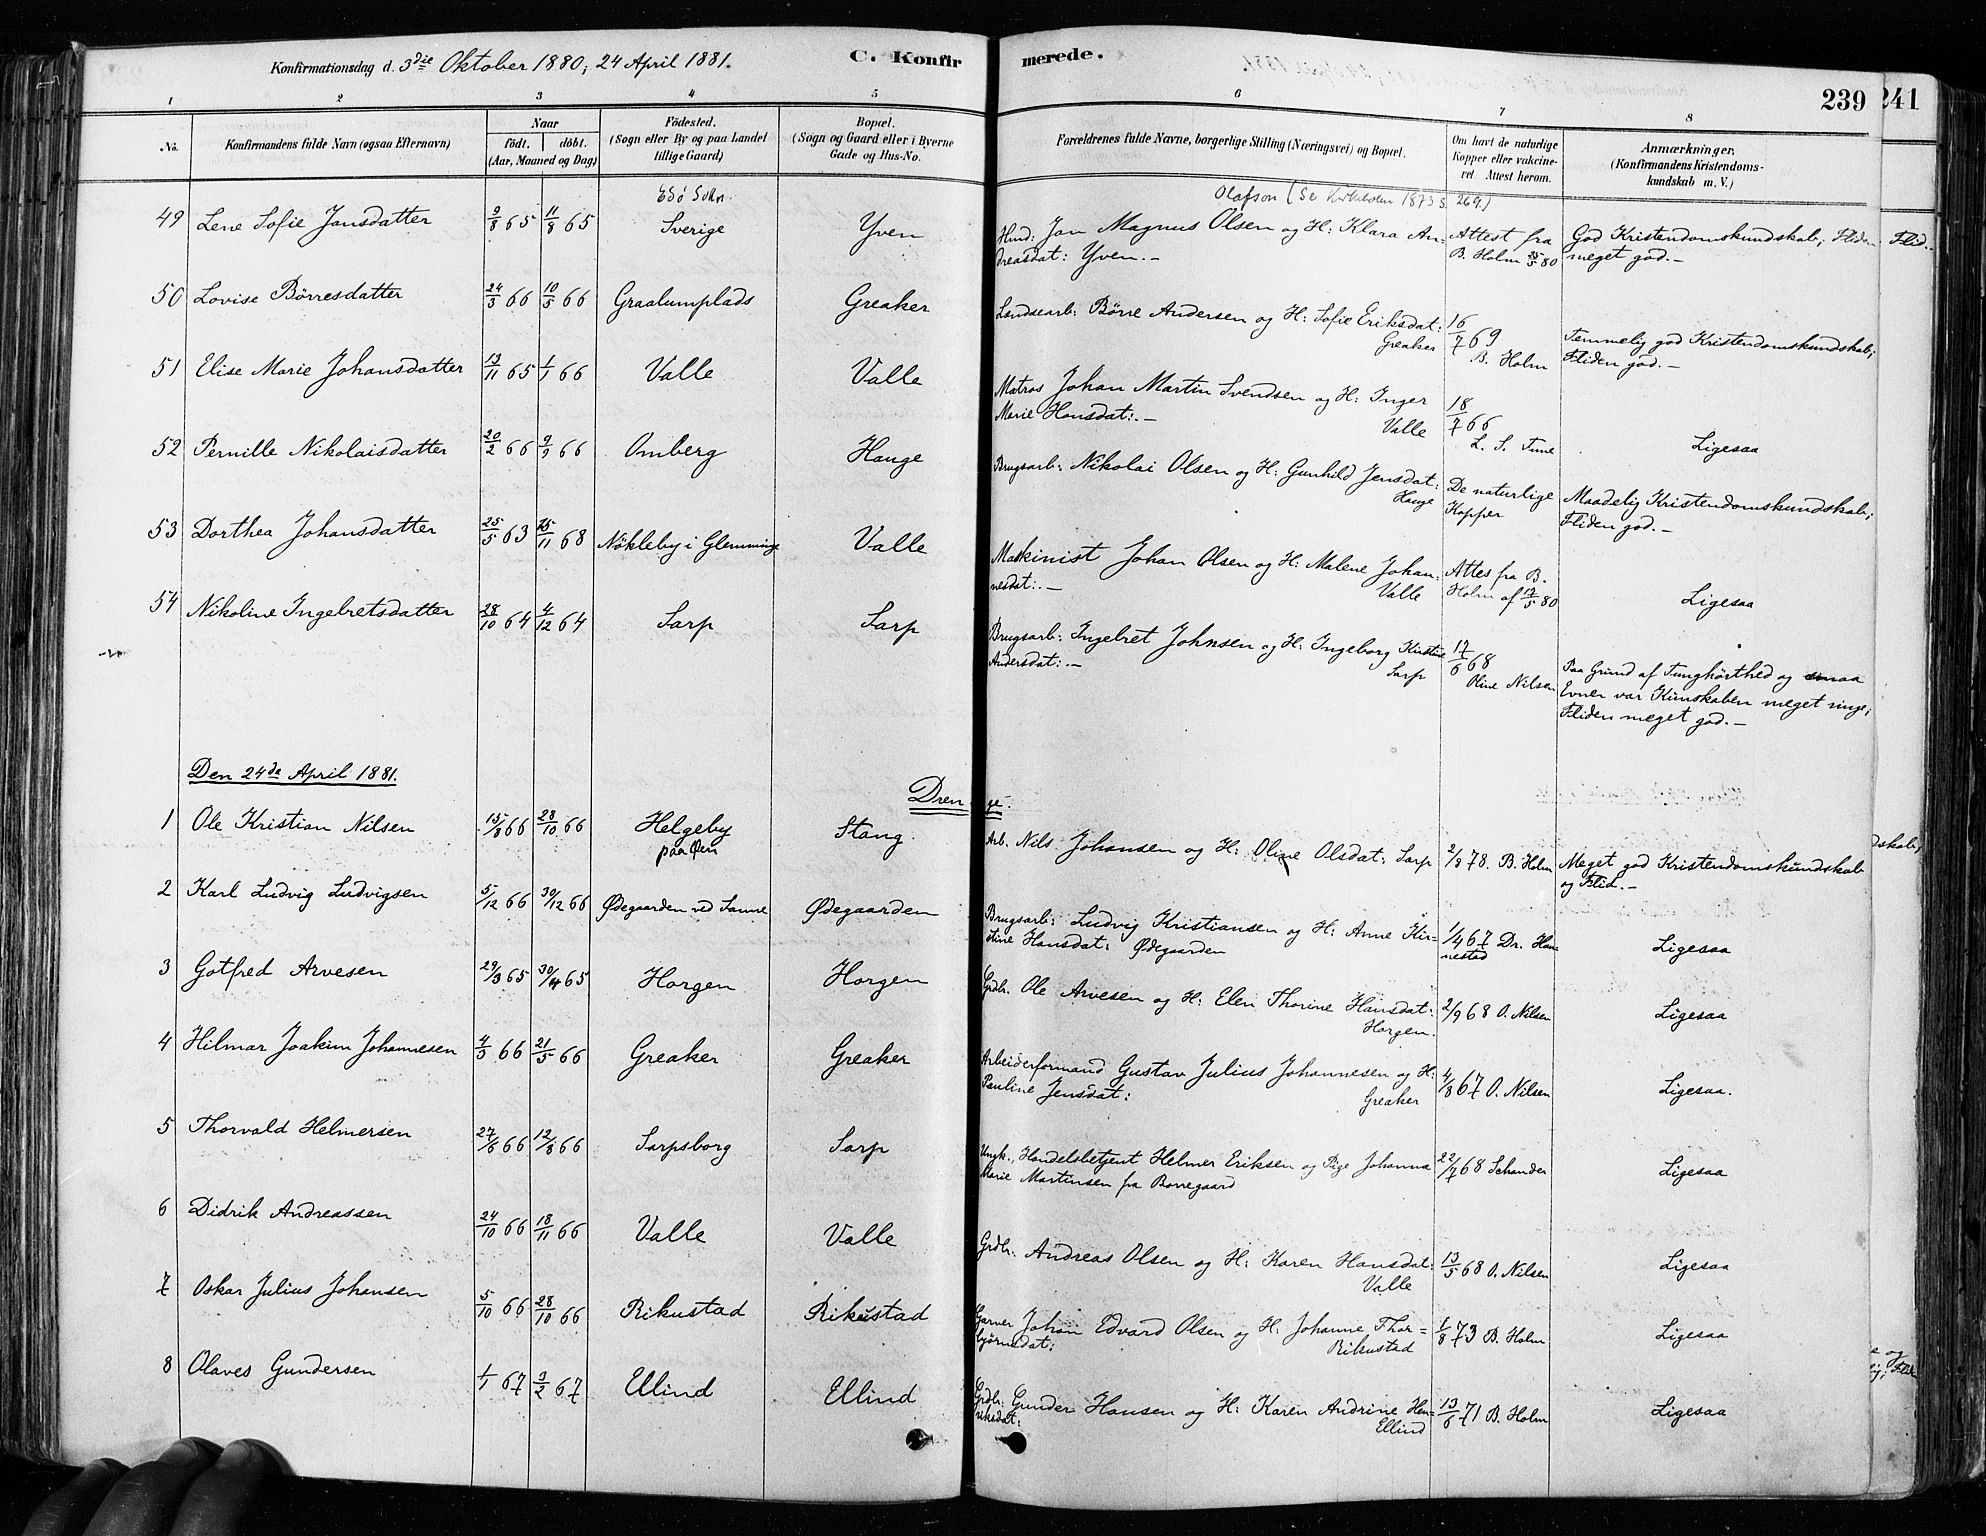 Konfirmationsdag d. 3die Oktober 1880, 24 April 1881. C. Konfir merede. 239 241
1 2 3 4 5 6 7 8
No. Konfirmandens fulde Navn (ogsaa Efternavn) Naar født. døbt. (Aar, Maaned og Dag) Fødested. (Sogn eller By og paa Landet tillige Gaard) Bopæl. (Sogn og Gaard eller i Byerne Gade og Hus-No. Forældrenes fulde Navne, borgerlige Stilling (Næringsvei) og Bopæl. Om havt de naturlige Kopper eller vakcineret. Attest herom. Anmærkninger. (Konfirmandens Kristendomskundskab m. V.)
Edö Sokn. Olafson (Se Kirkeboken 1873 s. 269.)
49 Lene Sofie Jansdatter 9/8 65 11/8 65 Sverige Yven Hmd: Jan Magnus Olsen og H: Klara An= Attest fra God Kristendomskundskab; Fliden Flid.
dreasdat: Yven.— B. Holm 25/5 80 meget god.—
50 Lovise Börresdatter 24/3 66 10/5 66 Graalumplads Greaker Landsearb: Børre Andersen og H: Sofie Eriksdat: 16/7 69 Temmelig god Kristendomskundskab;
Greaker B. Holm Fliden god.—
51 Elise Marie Johansdatter 13/11 65 1/1 66 Valle Valle Matros Johan Martin Svendsen og H: Inger 18/7 66
Marie Hansdat:.— Valle L. S. Tune Ligesaa
52 Pernille Nikolaisdatter 20/2 66 9/9 66 Omberg Hauge Brugsarb: Nikolai Olsen og H: Gunhild Jensdat: De naturlige Maadelig Kristendomskundskab;
Hauge Kopper Fliden god.—
53 Dorthea Johansdatter 25/5 63 15/11 68 Nökleby i Glemminge Valle Maskinist Johan Olsen og H: Malene Johan= Attes fra B.
nesdat:.— Valle Holm af 17/5 80 Ligesaa
54 Nikoline Ingebretsdatter 28/10 64 4/12 64 Sarp Sarp Brugsarb: Ingebret Johnsen og H: Ingeborg Kirstine 17/6 68 Paa Grund af Tunghørthed og smaa
Andersdat:.— Sarp Oline Nilsen Evner var Kunskaben meget ringe;
Fliden meget god.—
Den 24de April 1881.
Drenge.
1 Ole Kristian Nilsen 15/8 66 28/10 66 Helgeby Stang. Arb. Nils Johansen og H: Oline Olsdat: Sarp 2/8 78. B. Holm Meget god Kristendomskundskab dskab;
paa Øen og Flid.—
2 Karl Ludvig Ludvigsen 5/12 66 30/12 66 Ødegaarden ved Sanne Ødegaarden Brugsarb: Ludvig Kristiansen og H: Anne Kir= 1/4 67 Dr. Han= Ligesaa
stine Hansdat: Ødegaarden nestad
3 Gotfred Arvesen 29/3 65 30/4 65 Horgen Horgen Grdbr. Ole Arvesen og H: Elen Thorine Hansdat: 2/9 68 O. Nilsen Ligesaa
Horgen
4 Hilmar Joakim Johannesen 4/3 66 21/5 66 Greaker Greaker Arbeiderformand Gustav Julius Johannesen og H: 4/8 67 O. Nilsen Ligesaa.
Pauline Jensdat: Greaker
5 Thorvald Helmersen 27/6 66 12/8 66 Sarpsborg Sarp Ungk., Handelsbetjent Helmer Eriksen og Pige Johanna 22/7 68 Schander Ligesaa
Marie Martinsen fra Borregaard
6 Didrik Andreassen 24/10 66 18/11 66 Valle Valle Grdbr. Andreas Olsen og H: Karen Hansdat: 13/5 68 O. Nilsen Ligesaa
Valle
7 Oskar Julius Johansen 5/10 66 28/10 66 Rikustad Rikustad Garner Johan Edvard Olsen og H: Johanne Thor= 1/8 73 B. Holm Ligesaa
bjørnsdat: Rikustad
8 Olaves Gundersen 1/1 67 3/2 67 Ellind Ellind Grdbr: Gunder Hansen og H: Karen Andrine Hen= 13/6 71 B. Holm Ligesaa
riksdat: Ellind